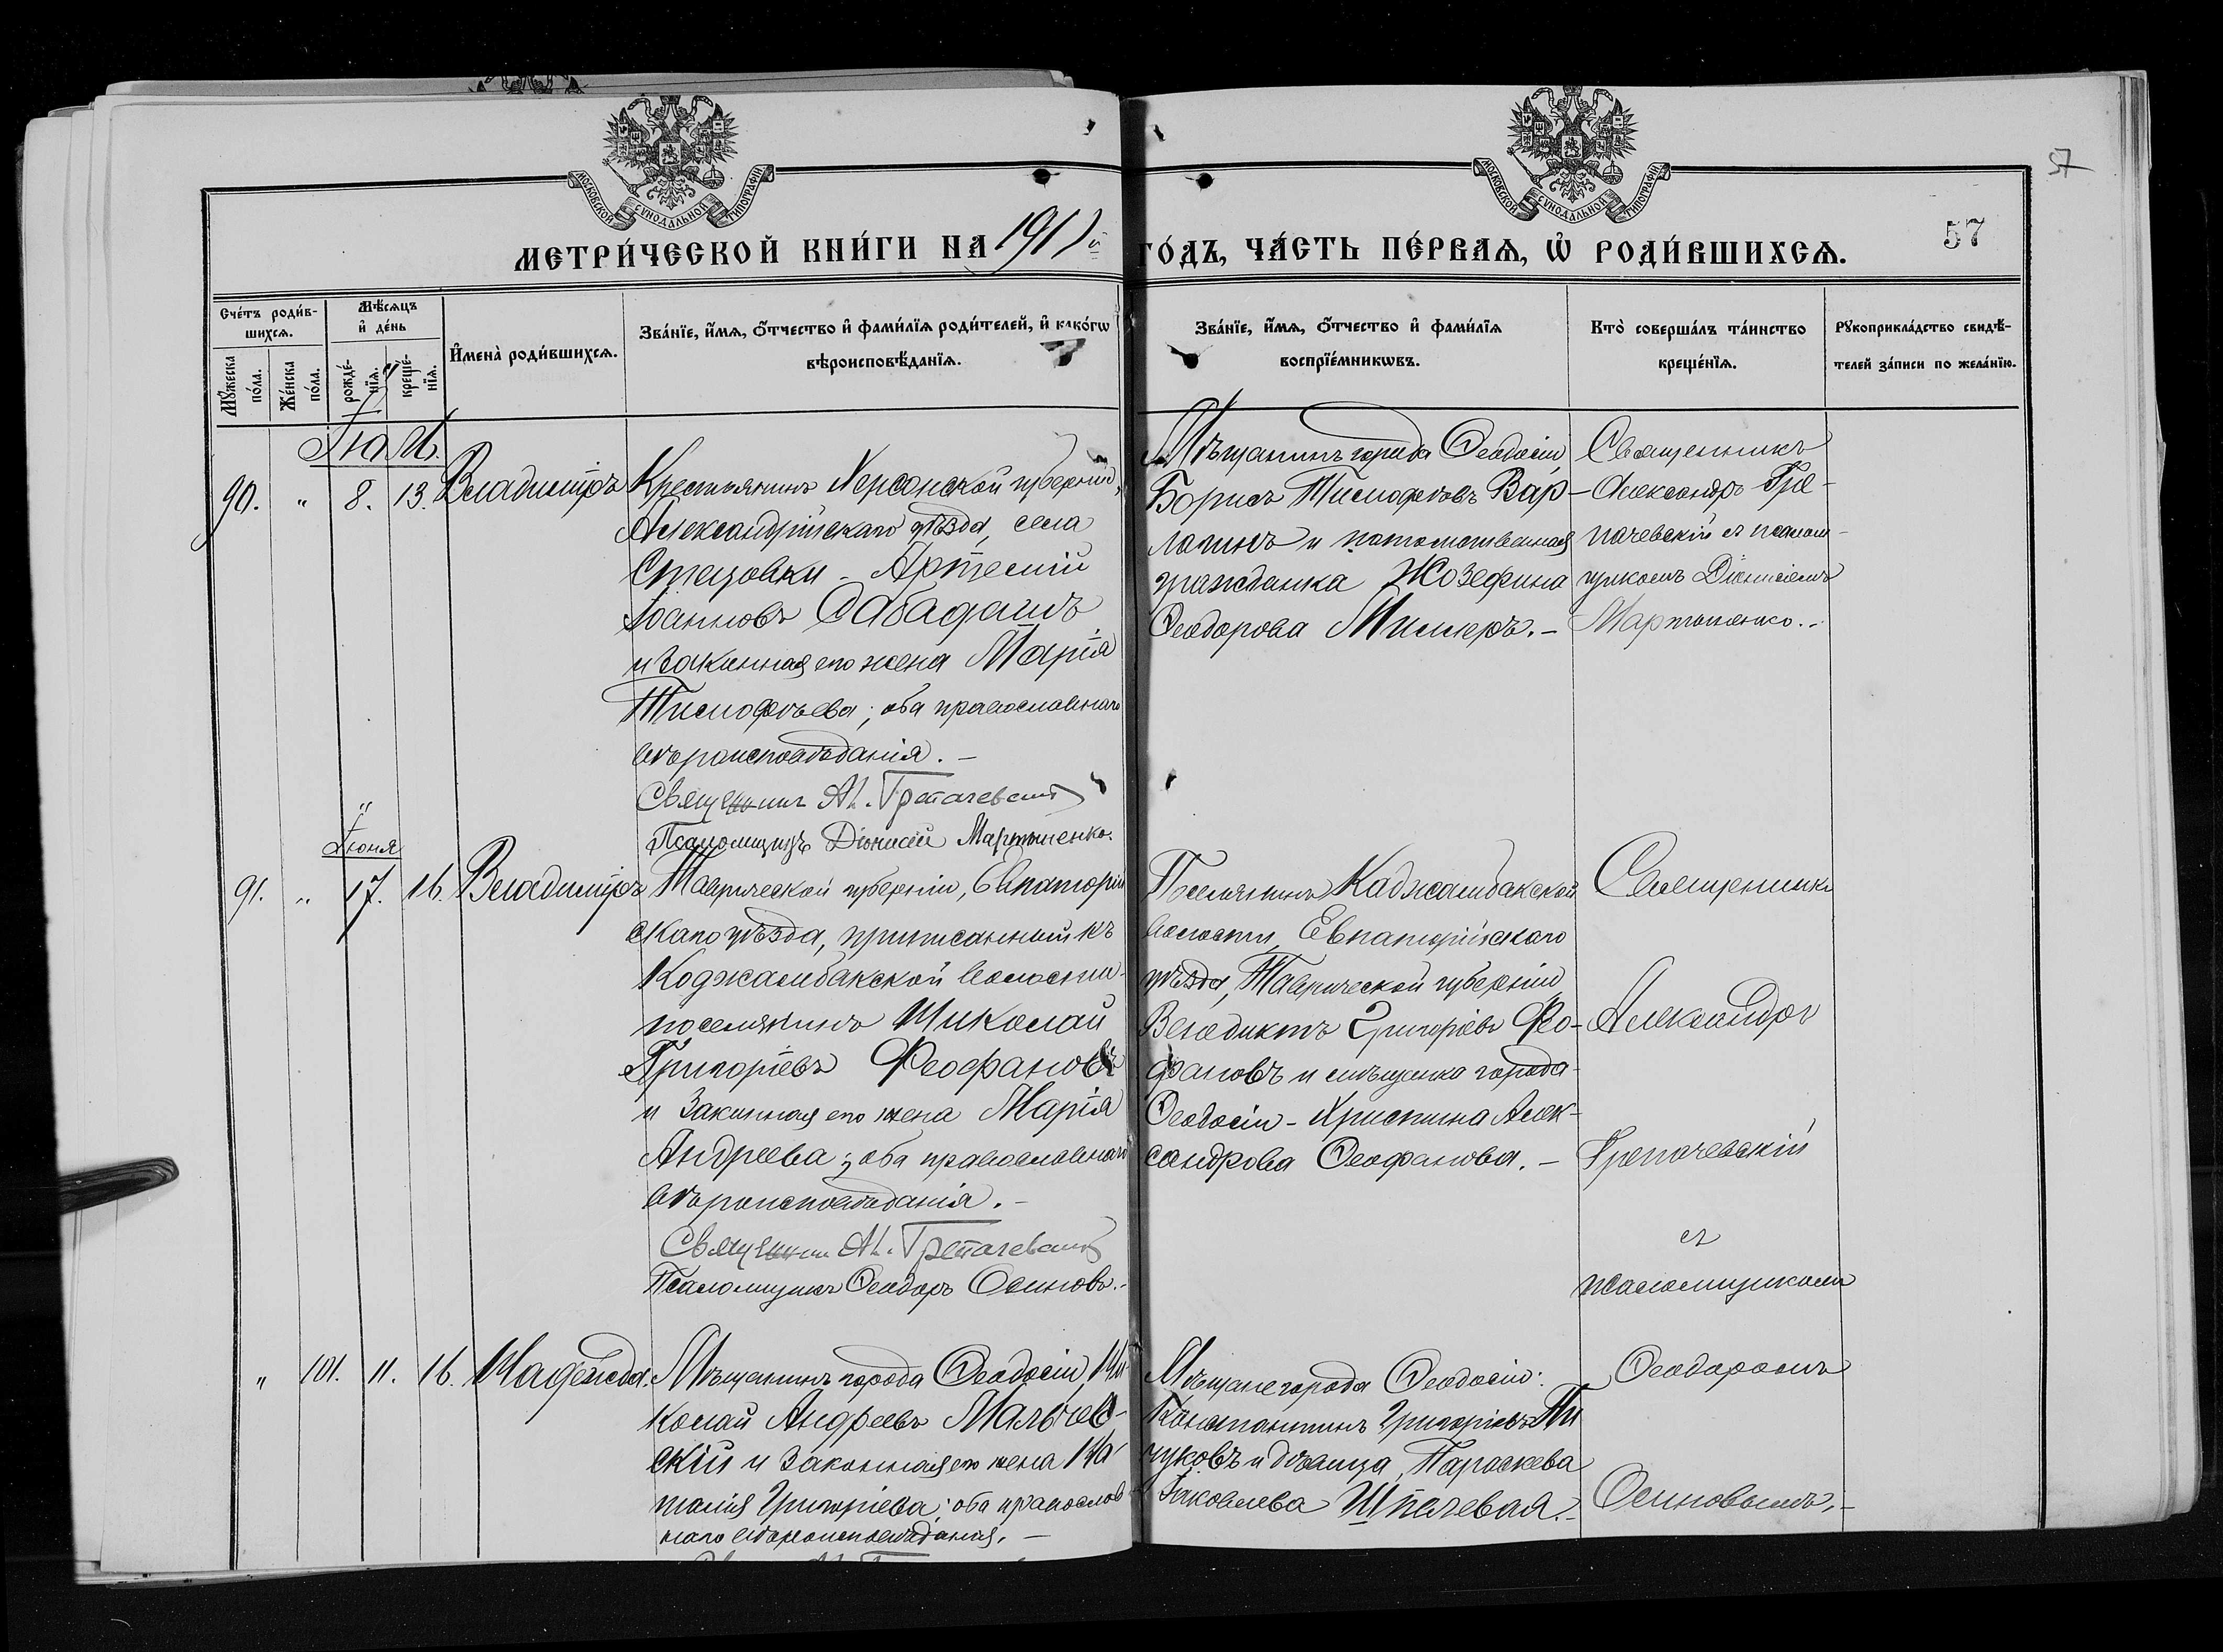 МОСКОВСКОЙ СѴНОДАЛЬНОЙ ТИПОГРАФІИ
МОСКОВСКОЙ СѴНОДАЛЬНОЙ ТИПОГРАФІИ
57
57
МЕТРИ́ЧЕСКОЙ КНИ́ГИ НА 191
ГО́ДЪ, ЧА́СТЬ ПЕ́РВАѦ, Ѡ҆ РОДИ́ВШИХСѦ.
Сче́тъ роди́в-
шихсѧ.
Мꙋ́жеска по́ла.
Же́нска по́ла.
Мѣ́сѧцъ и҆ де́нь
рожде́-нїѧ.
креще́-нїѧ.
И҆мена̀ роди́вшихсѧ.
Зва́нїе, и҆́мѧ, ѻ҆́тчество и҆ фами́лїѧ роди́телей, и҆ како́гѡ
вѣроисповѣ́данїѧ.
Зва́нїе, и҆́мѧ, ѻ҆́тчество и҆ фами́лїѧ
воспрїе́мникѡвъ.
Кто̀ соверша́лъ та́инство
креще́нїѧ.
Рꙋкоприкла́дство свидѣ́-
телей за́писи по жела́нїю.
Іюль.
90. " 8. 13. Владиміръ
Крестьянинъ Херсонской губерніи,
Александрійскаго уѣзда, села
Стецовки - Артемій
Іоанновъ Сабадашъ
и законная его жена Марія
Тимофѣева; оба православнаго
вѣроисповѣданія. -
Священник Ал. Грепачевскій
Псаломщикъ Діонисій Мартыненко.
Мѣщанинъ города Ѳеодосіи,
Борисъ Тимофеевъ Вар-
лагинъ и потомственная
гражданка Жозефина
Ѳеодорова Миллеръ. -
Священникъ
Александръ Гре-
пачевскій съ псалом-
щикомъ Діонисіемъ
Мартыненко. -
"
Іюня
91. " 17. 16. Владиміръ
Таврической губерніи, Евпаторій
скаго уѣзда, приписанный къ
Коджамбакской волости -
поселянинъ Николай
Григоріевъ Феофановъ
и законная его жена Марія
Андреева; оба православнаго
вѣроисповѣданія. -
Священник Ал. Грепачевскій
Псаломщикъ Ѳеодоръ Осиновъ. -
Поселянинъ Каджамбакской
волости, Евпаторійскаго
уѣзда, Таврической губерніи
Венедиктъ Григоріевъ Фео-
фановъ и мѣщанка города
Ѳеодосіи - Христина Алек-
сандрова Ѳеофанова. -
Священникъ
Александръ
Грепачевскій
съ
псаломщикомъ
Ѳеодоромъ
Осиновымъ. -
" 101. 11. 16. Надежда.
Мѣщанинъ города Ѳеодосіи, Ни
колай Андреевъ Мальчев-
скій и законная его жена На
талія Григоріева; оба православ
наго вѣроисповѣданія. -
Мѣщане города Ѳеодосіи:
Константинъ Григоріевъ
и дѣвица, Параскева
Іаковлева